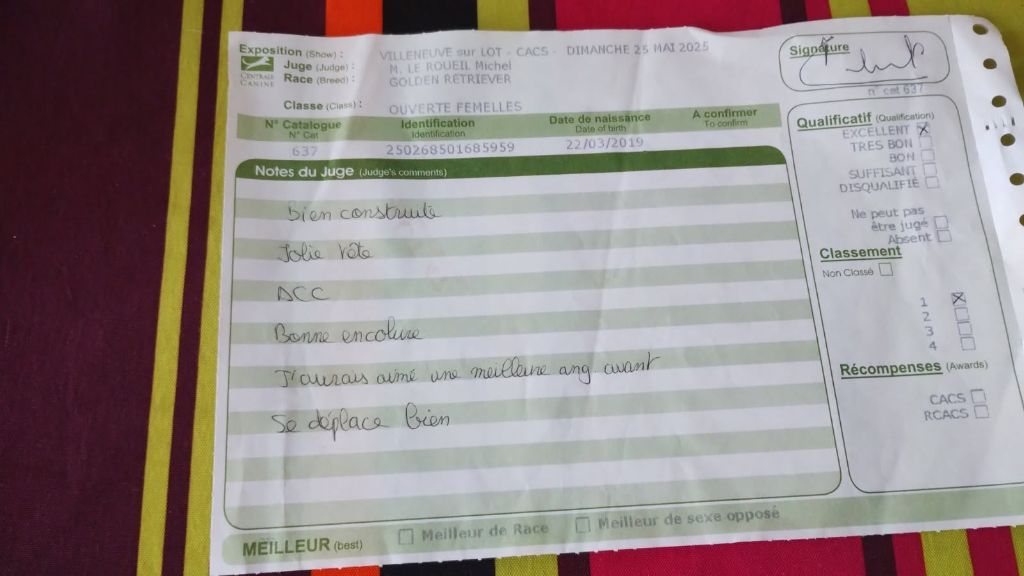 Exposition (Show) : VILLENEUVE sur LOT - CACS - DIMANCHE 25 MAI 2025
Juge (Judge) : M. LE ROUEIL Michel
Race (Breed) : GOLDEN RETRIEVER
CENTRALE CANINE
Classe (Class) : OUVERTE FEMELLES
N° Catalogue Identification Date de naissance A confirmer
N° Cat Identification Date of birth To confirm
637 250268501685959 22/03/2019
Notes du Juge (Judge's comments)
Bien construite
Jolie tête
DCC
Bonne encolure
J'aurais aimé une meilleure ang avant
Se déplace bien
MEILLEUR (best) Meilleur de Race Meilleur de sexe opposé
Signature
n° cat 637
Qualificatif (Qualification)
EXCELLENT
TRES BON
BON
SUFFISANT
DISQUALIFIÉ
Ne peut pas
être jugé
Absent
Classement
Non Classé
1
2
3
4
Récompenses (Awards)
CACS
RCACS